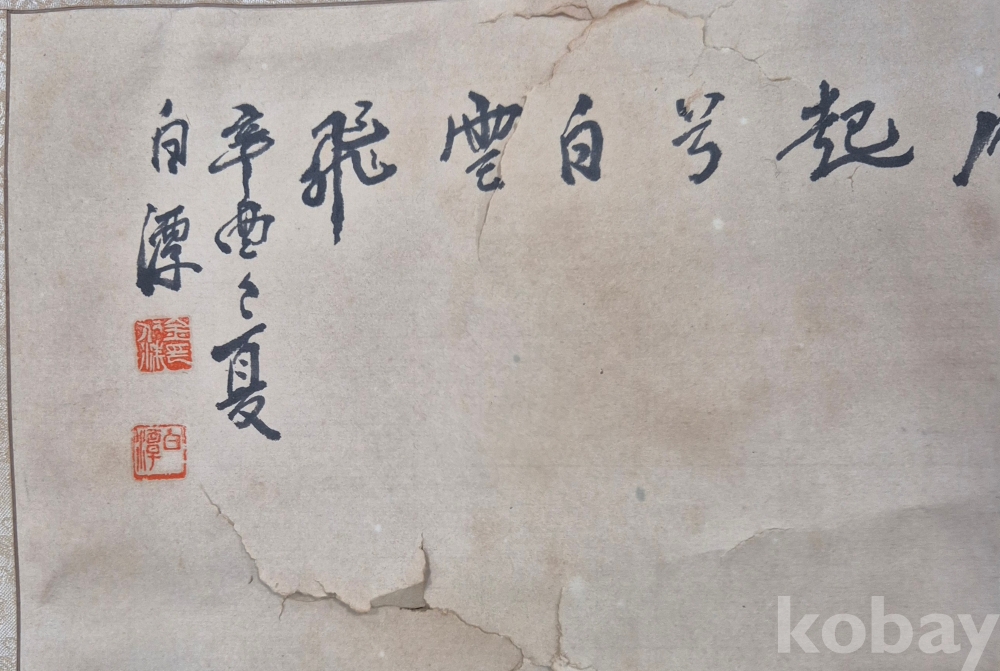 起兮白雲飛
辛酉之夏
白潭
白潭
kobay